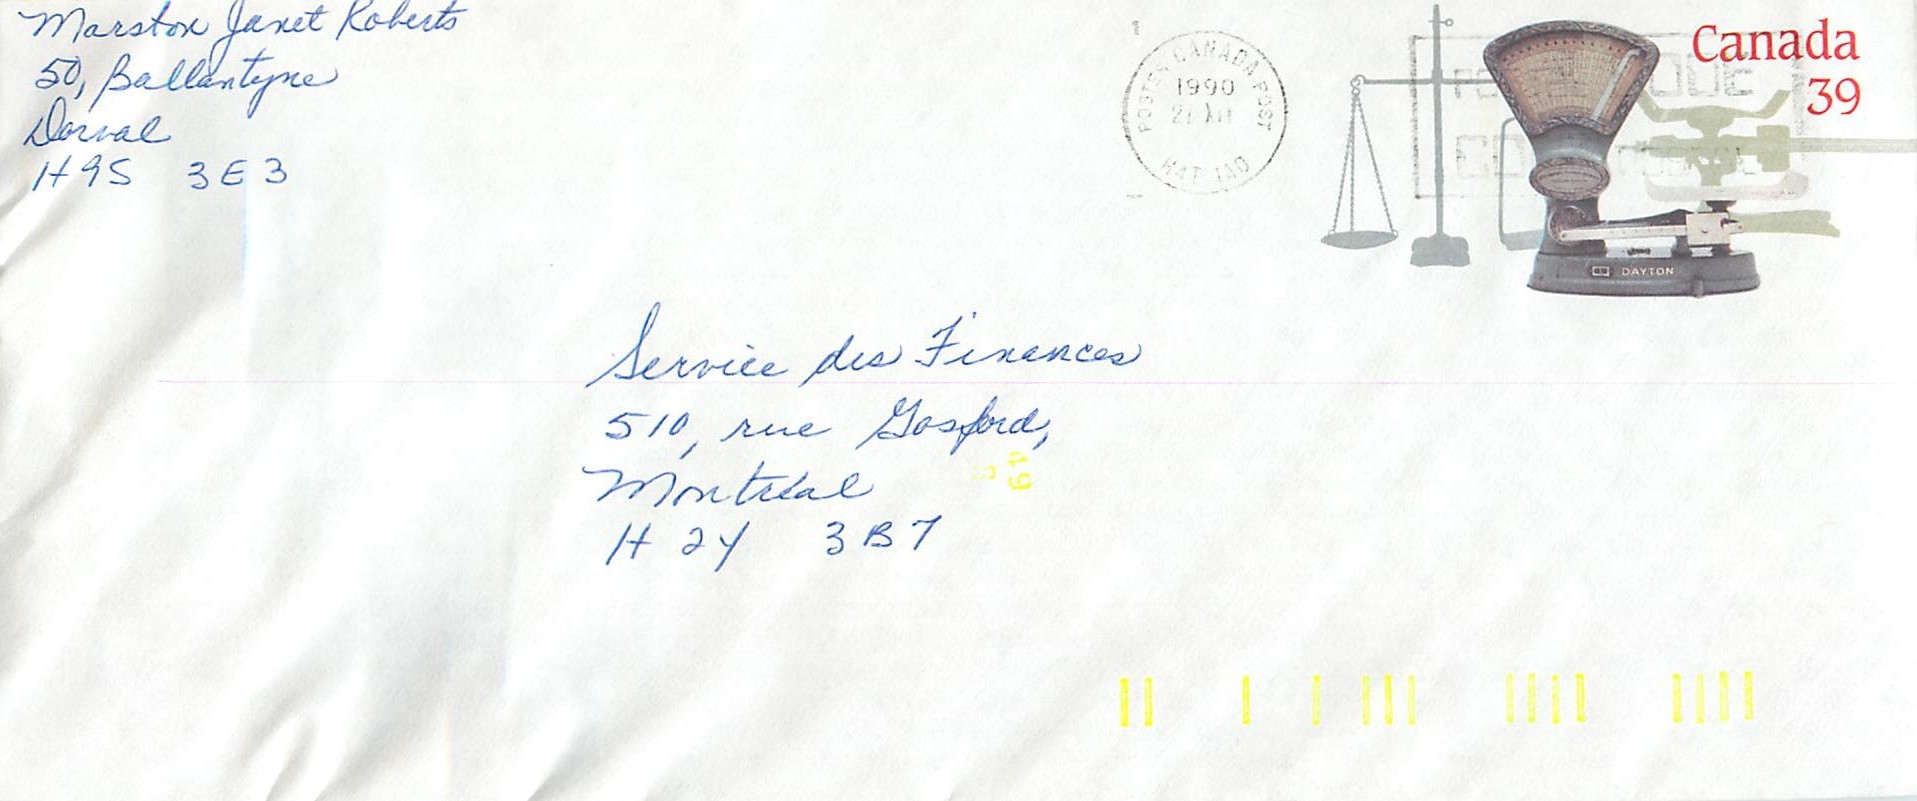 Marston Janet Roberts
50, Ballantyne
Dorval
H9S 3E3
POSTES CANADA POST
1990
H4T 1A0
Canada
39
DAYTON
Service des Finances
510, rue Gosford,
Montréal
H2Y 3B7